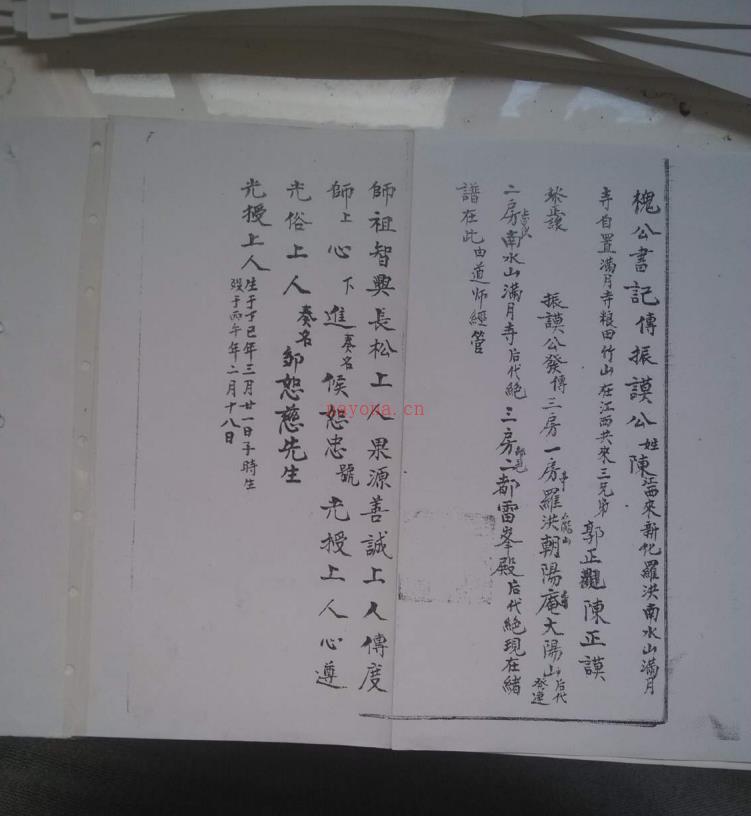 槐公書記傳振謨公姓陳江西來新化羅洪南水山滿月
寺自置滿月寺粮田竹山在江西共來三兄弟郭正觀陳正謨
振謨公發傳三房一房羅洪朝陽庵大陽山后代發達
二房南水山滿月寺后代絕三房二都雷峯殿后代絕現在緒
譜在此由道師經管
師祖智興長松上人果源善誠上人傳度
師上心下進奏名候恕忠號光授上人心遵
光俗上人奏名鄒恕慈先生
光授上人生于丁巳年三月廿一日子時生
歿于丙午年二月十八日
nayoua.cn